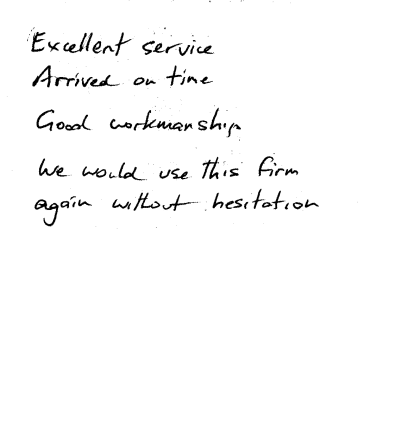 Excellent service
Arrived on time
Good workmanship
We would use this firm
again without hesitation